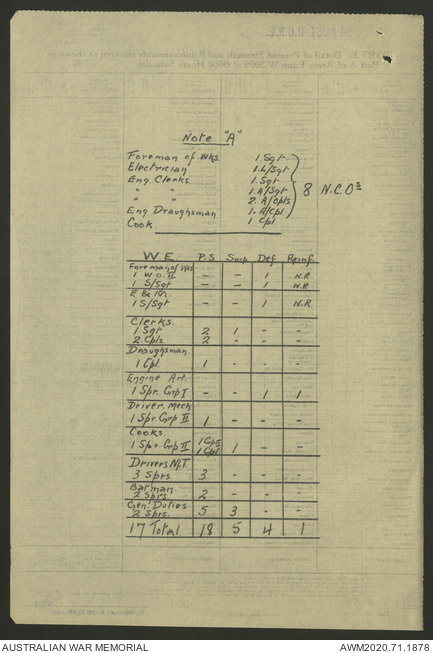 Note "A"
Foreman of Wks. 1 Sgt
Electrician 1. L/Sgt
Eng. Clerks 1. Sgt
" " 1. A/Sgt 8 N.C.Os
" " 2 A/Cpls
Eng. Draughsman 1. A/Cpl
Cook 1 Cpl
W.E. P.S Surp. Def. Reinf.
Foreman of Wks
1 W.O. II - - 1 N.R
1 S/Sgt - - 1 N.R
E & M.
1 S/Sgt - - 1 N.R
Clerks.
1 Sgt 2 1 - -
2 Cpls. 2 - - -
Draughsman
1 Cpl. 1 - - -
Engine Art.
1 Spr. Grp I - - 1 1
Driver. Mech
1 Spr. Grp II 1 - - -
Cooks. 1 Grp II
1 Spr. Grp II 1 Cpl 1 - -
Drivers M.T.
3 Sprs 3 - - -
Batman.
2 Sprs. 2 - - -
Genl Duties
2 Sprs. 5 3 - -
17 Total 18 5 4 1
AUSTRALIAN WAR MEMORIAL AWM2020.71.1878